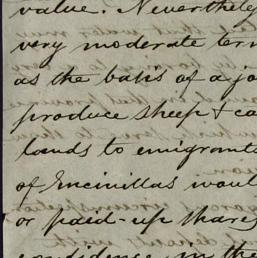 value. Nevertheles
very moderate ter
as the basis of a jo
produce sheep & ca
lands to emigrant
of Encinillas woul
or paid-up shares
confidence in the